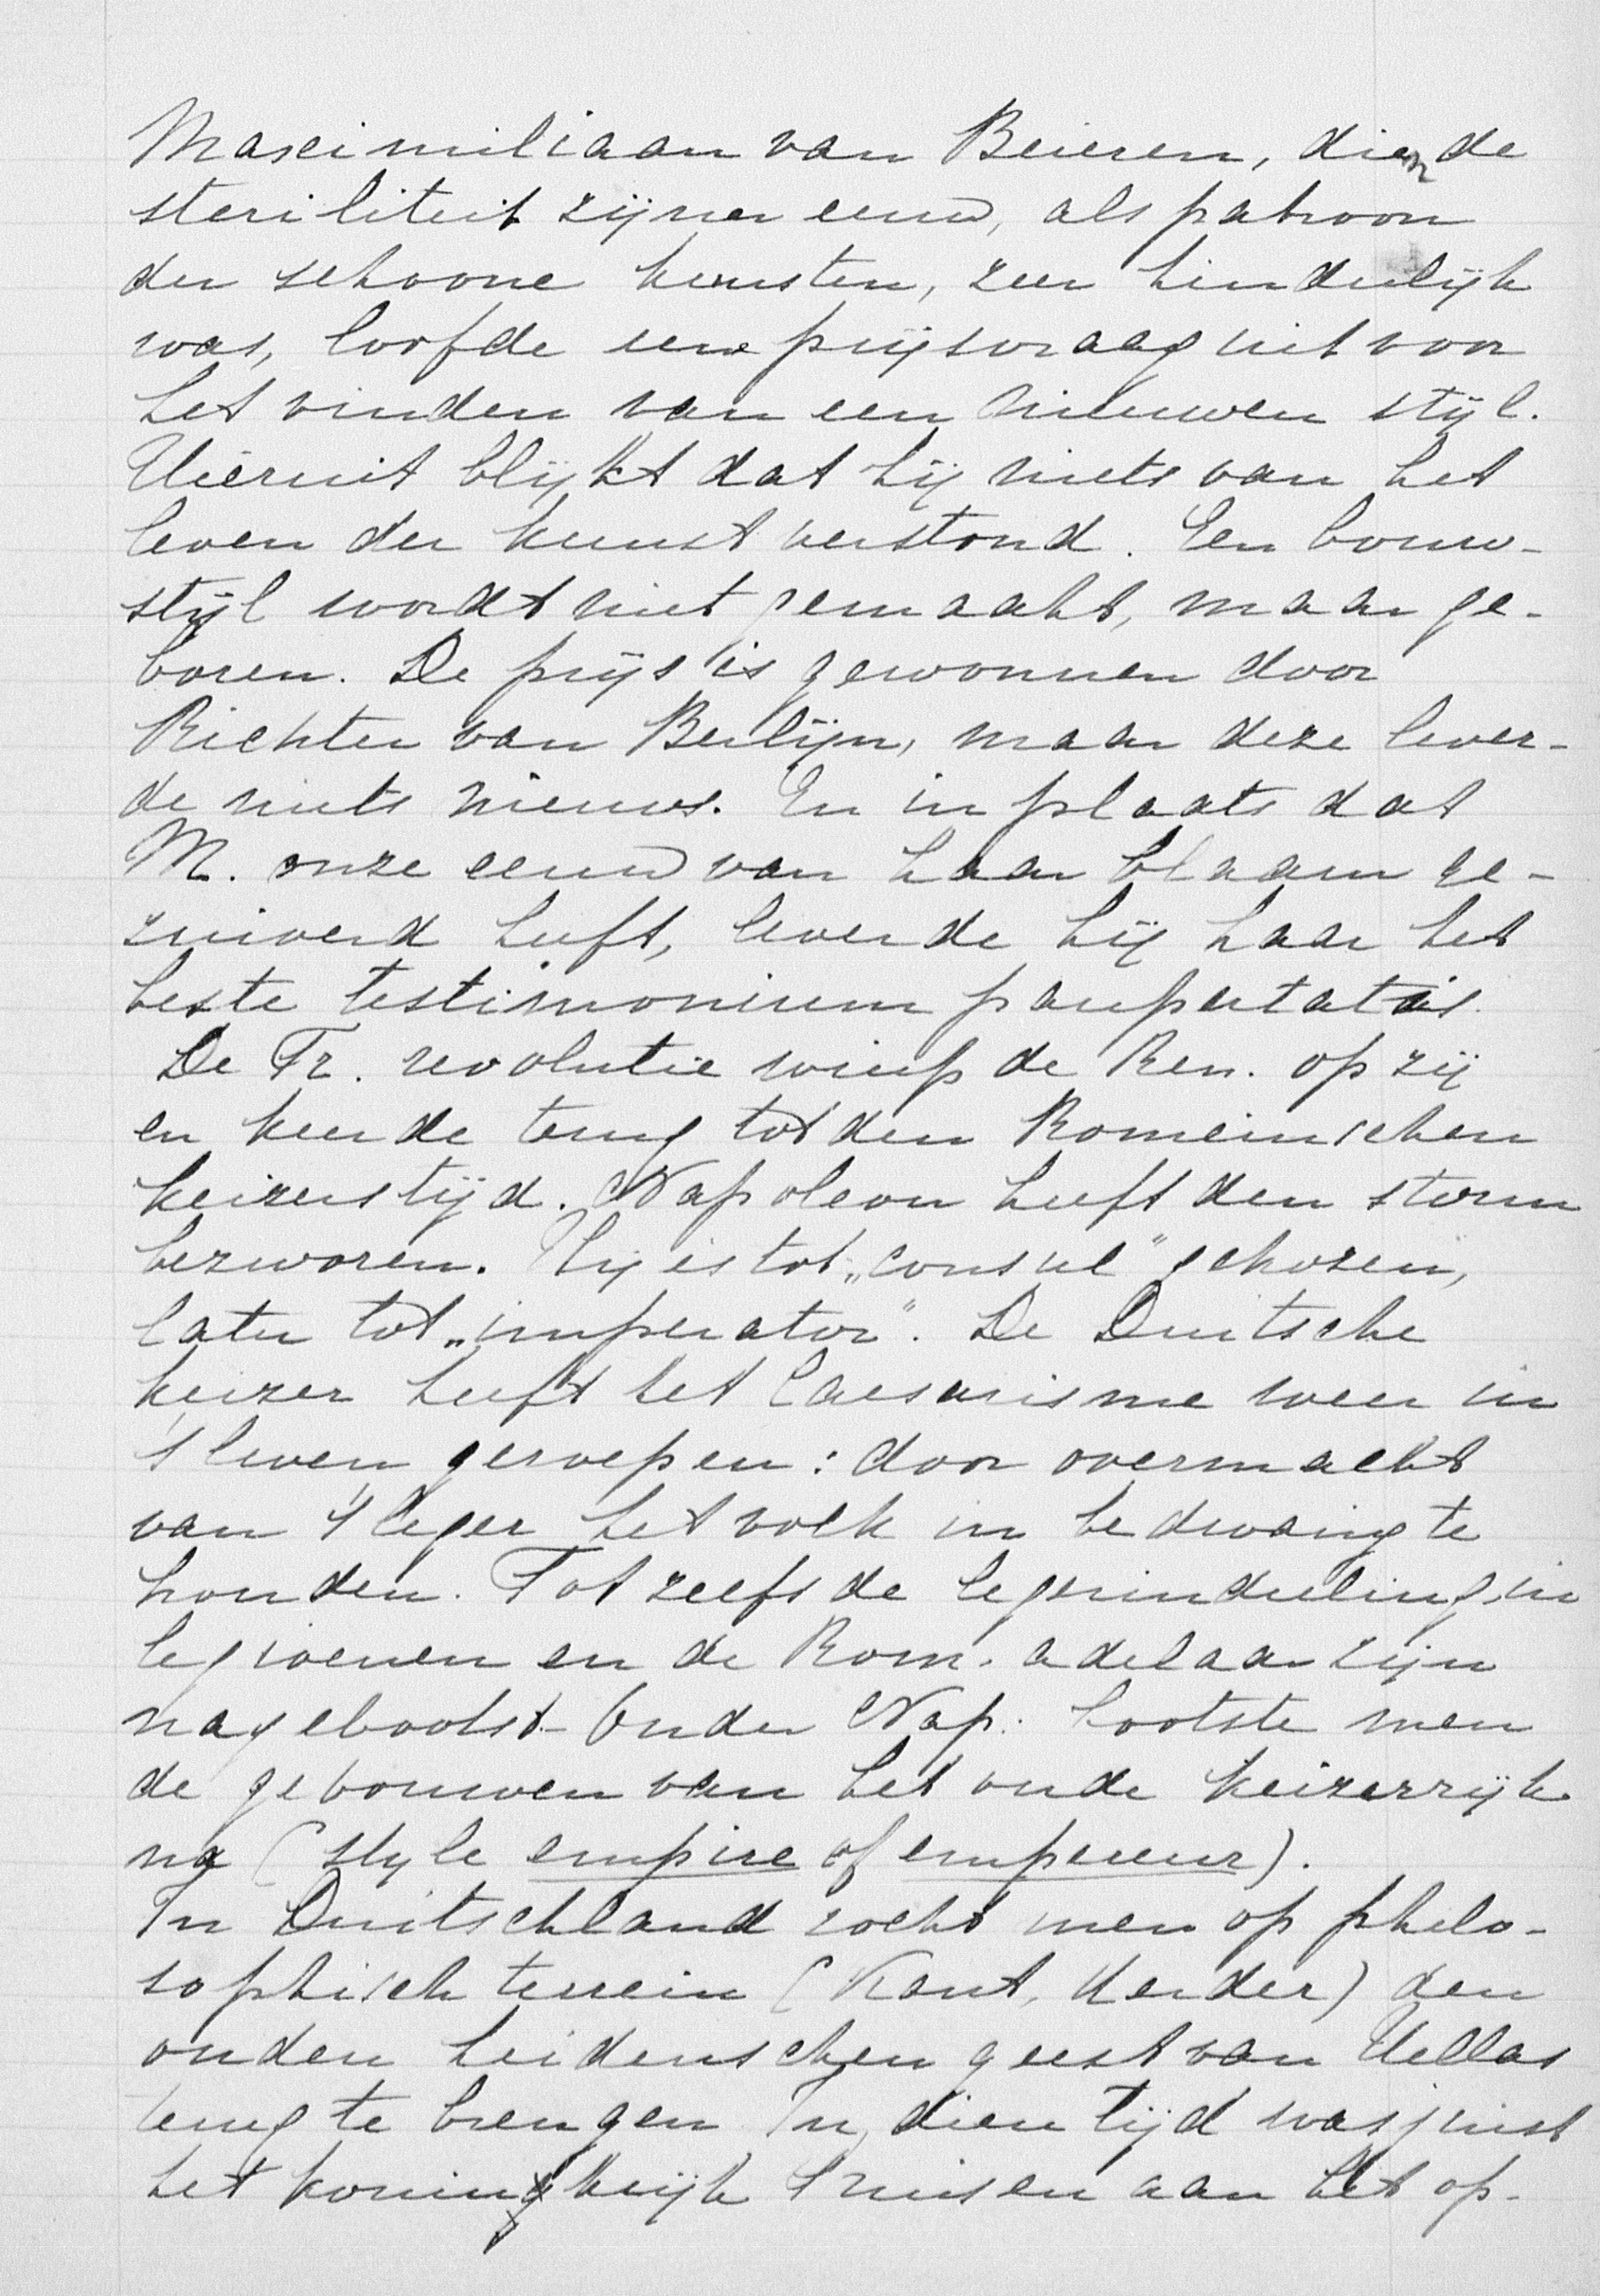 Maximiliaan van Beieren, dien de
steriliteit zijner eeuw, als patroon
der schoone kunsten, zeer hinderlijk
was, loofde een prijsvraag uit voor
het vinden van een nieuwen stijl.
Hieruit blijkt dat hij niets van het
leven der kunst verstond. Een bouw-
stijl wordt niet gemaakt, maar ge-
boren. De prijs is gewonnen door
Richter van Berlijn, maar deze lever-
de niets nieuws. En in plaats dat
M. onze eeuw van haar blaam ge-
zuiverd heeft, leverde hij haar het
beste testimonium paupertatis.
De Fr. revolutie wierp de Ren. op zij
en keerde terug tot den Romeinschen
keizerstijd. Napoleon heeft den storm
bezworen. Hij is tot „consul" gekozen,
later tot „imperator". De Duitsche
keizer heeft het Caesarisme weer in
't leven geroepen: door overmacht
van 't leger het volk in bedwang te
houden. Tot zelfs de legerindeeling in
legioenen en de Rom. adelaar zijn
nagebootst. Onder Nap. bootste men
de gebouwen van het oude keizerrijk
na (style empire of empereur).
In Duitschland zocht men op philo-
sophisch terrein (Kant, Herder) den
ouden heidenschen geest van Hellas
terug te brengen. In dien tijd was juist
het koninkrijk Pruisen aan het op-